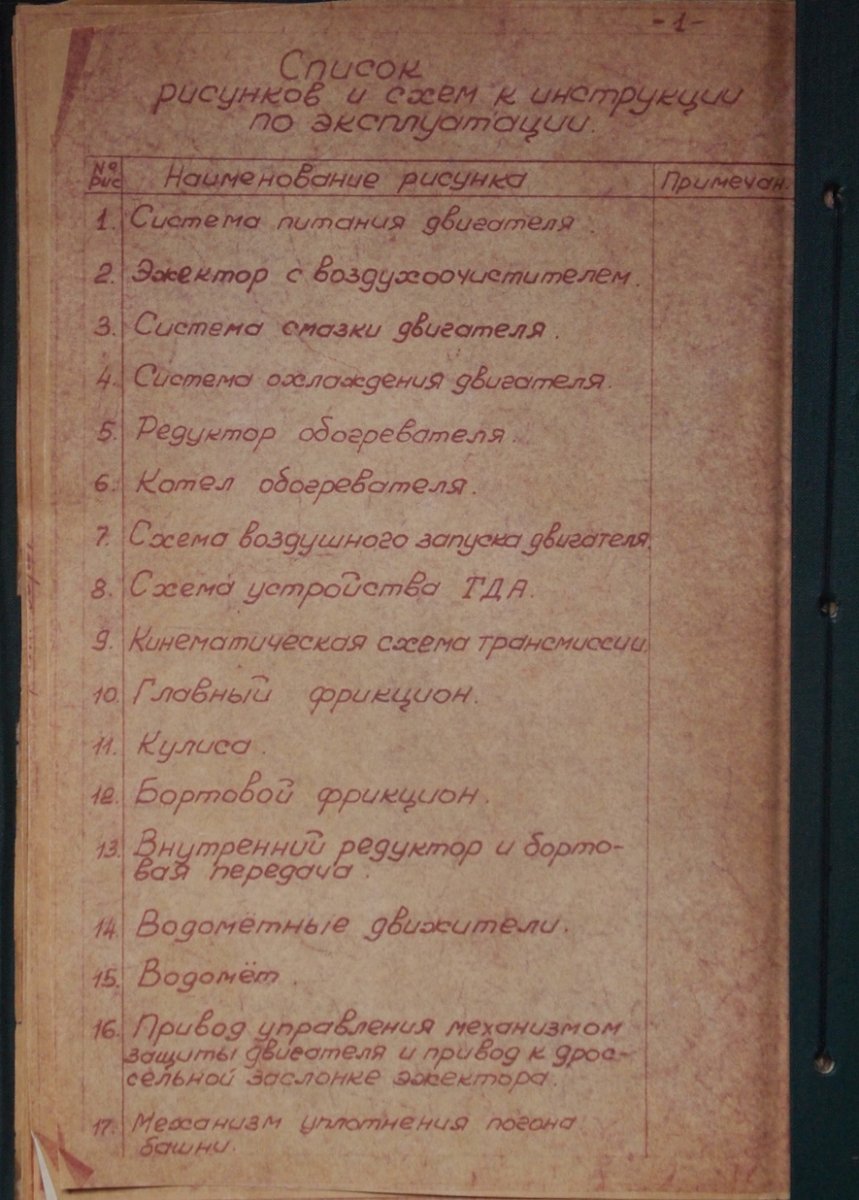 -1-
Список
рисунков и схем к инструкции
по эксплуатации.
№ рис Наименование рисунка Примечан.
1. Система питания двигателя.
2. Эжектор с воздухоочистителем.
3. Система смазки двигателя.
4. Система охлаждения двигателя.
5. Редуктор обогревателя.
6. Котел обогревателя.
7. Схема воздушного запуска двигателя.
8. Схема устройства ТДА.
9. Кинематическая схема трансмиссии.
10. Главный фрикцион.
11. Кулиса.
12. Бортовой фрикцион.
13. Внутренний редуктор и борто-
вая передача.
14. Водомётные движители.
15. Водомёт.
16. Привод управления механизмом
защиты двигателя и привод к дрос-
сельной заслонке эжектора.
17. Механизм уплотнения погона
башни.